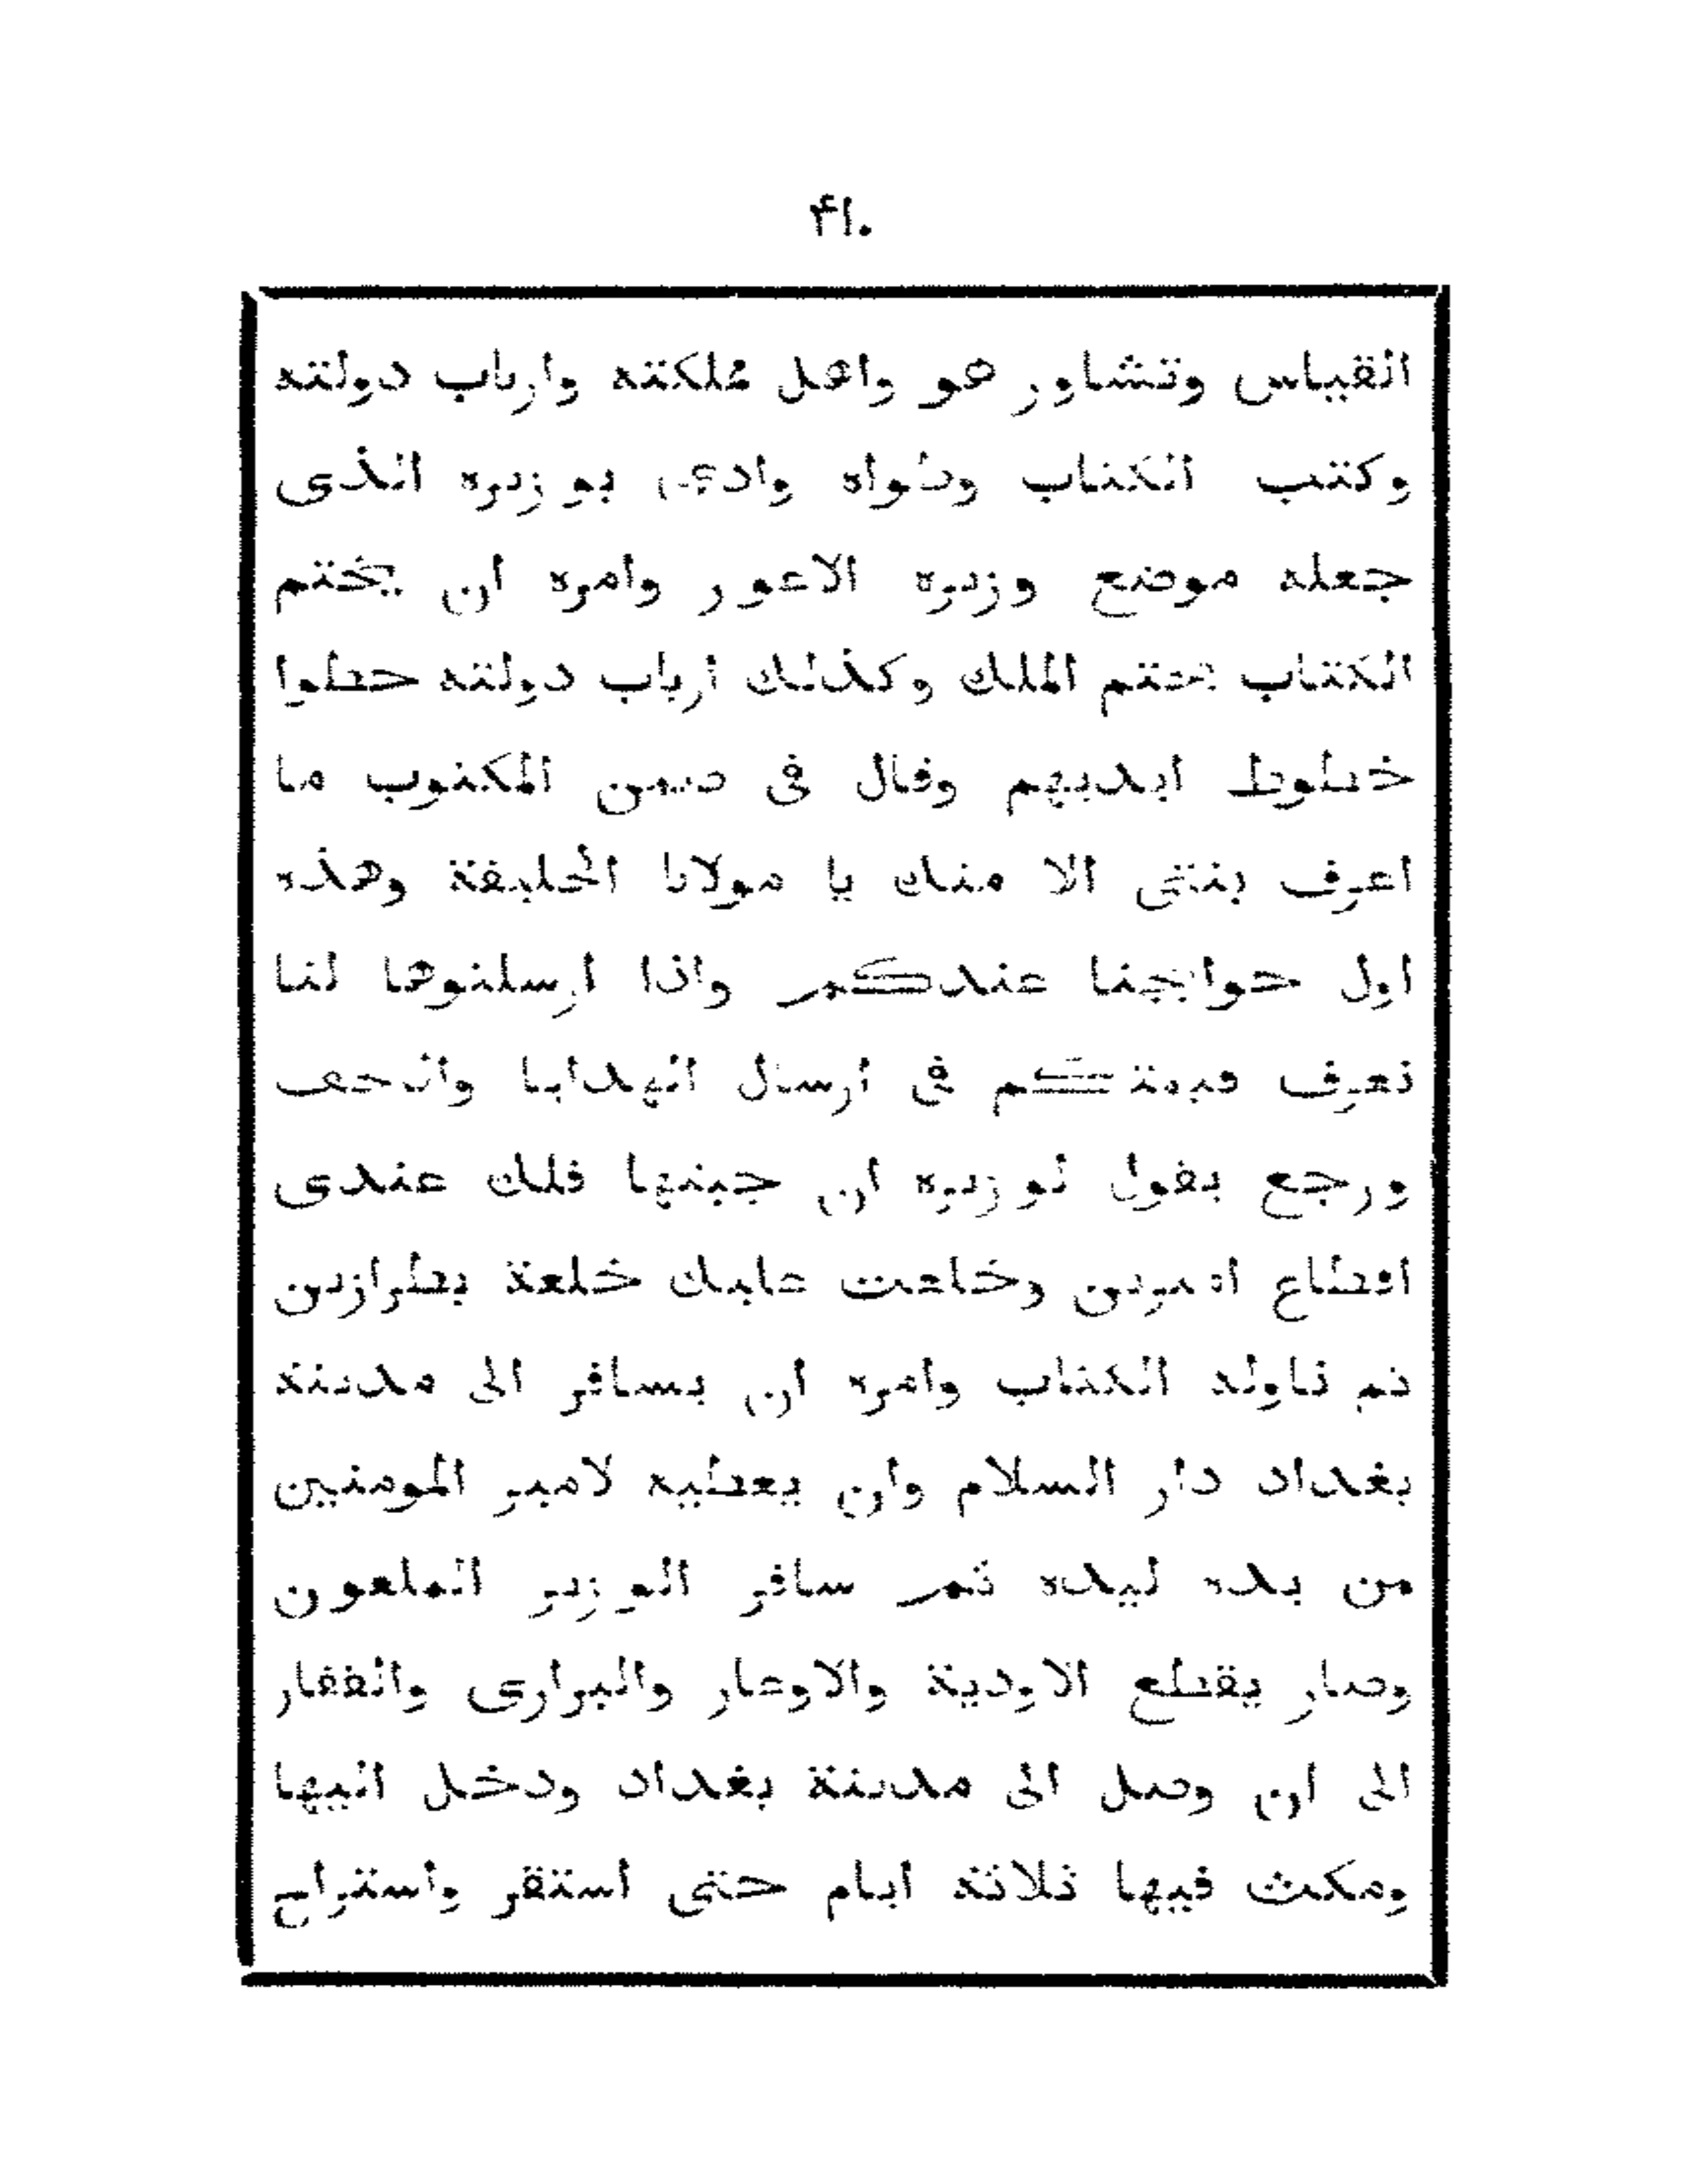 ۴۱۰
القياس وتشاور هو واهل مملكته وارباب دولته
وكتب الكتاب وطواه وادعى بوزيره الذى
جعله موضع وزيره الاعور وامره ان يختم
الكتاب بختم الملك وكذلك ارباب دولته حطوا
خطوط ايديهم وقال فى ضمن المكتوب ما
اعرف بنتى الا منك يا مولانا الخليفة وهذه
اول حوايجنا عندكم واذا ارسلتوها لنا
نعرف قيمتكم فى ارسال الهدايا والتحف
ورجع يقول لوزيره ان جبتها فلك عندى
اقطاع اميرين وخلعت عليك خلعة بطرازين
ثم ناوله الكتاب وامره ان يسافر الى مدينة
بغداد دار السلام وان يعطيه لامير المومنين
من يده ليده ثم سافر الوزير الملعون
وصار يقطع الاودية والاوعار والبرارى والقفار
الى ان وصل الى مدينة بغداد ودخل اليها
ومكث فيها ثلاثة ايام حتى استقر واستراح